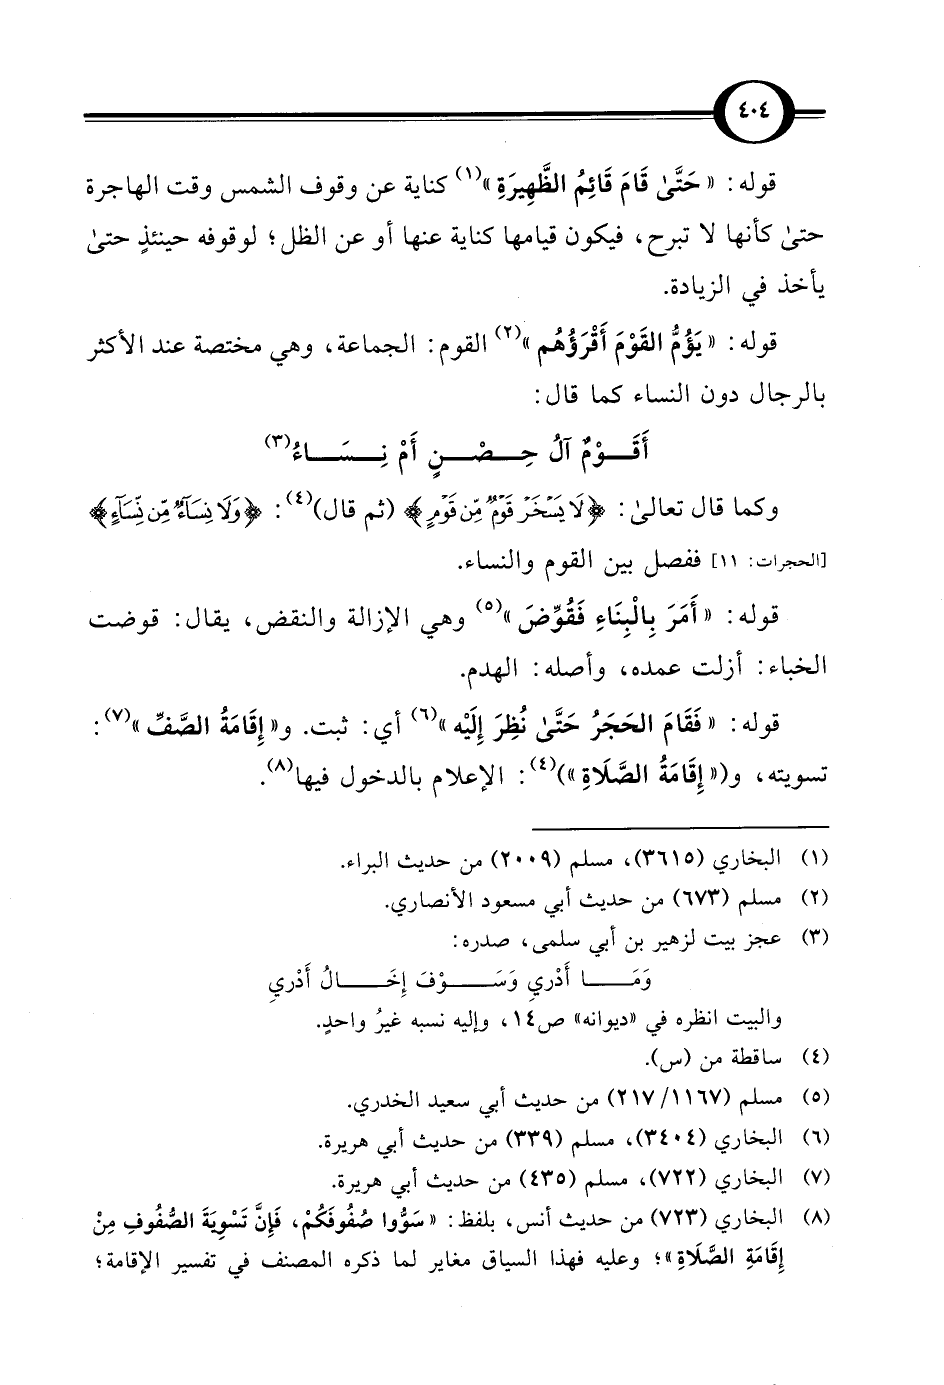 ٤٠٤
قوله: «حَتَّىٰ قَامَ قَائِمُ الظَّهِيرَةِ»(١) كناية عن وقوف الشمس وقت الهاجرة
حتىٰ كأنها لا تبرح، فيكون قيامها كناية عنها أو عن الظل؛ لوقوفه حينئذٍ حتىٰ
يأخذ في الزيادة.
قوله: «يَؤُمُّ القَوْمَ أَقْرَؤُهُم»(٢) القوم: الجماعة، وهي مختصة عند الأكثر
بالرجال دون النساء كما قال:
أَقَــوْمٌ آلُ حِــصْــنٍ أَمْ نِــسَــاءُ(٣)
وكما قال تعالىٰ: ﴿لَا يَسْخَرْ قَوْمٌ مِّن قَوْمٍ﴾ (ثم قال)(٤): ﴿وَلَا نِسَآءٌ مِّن نِّسَآءٍ﴾
[الحجرات: ١١] ففصل بين القوم والنساء.
قوله: «أَمَرَ بِالْبِنَاءِ فَقُوِّضَ»(٥) وهي الإزالة والنقض، يقال: قوضت
الخباء: أزلت عمده، وأصله: الهدم.
قوله: «فَقَامَ الحَجَرُ حَتَّىٰ نُظِرَ إِلَيْه»(٦) أي: ثبت. و«إِقَامَةُ الصَّفِّ»(٧):
تسويته، و(«إِقَامَةُ الصَّلَاةِ»)(٤): الإعلام بالدخول فيها(٨).
(١) البخاري (٣٦١٥)، مسلم (٢٠٠٩) من حديث البراء.
(٢) مسلم (٦٧٣) من حديث أبي مسعود الأنصاري.
(٣) عجز بيت لزهير بن أبي سلمى، صدره:
وَمَــا أَدْرِي وَسَــوْفَ إِخَــالُ أَدْرِي
والبيت انظره في «ديوانه» ص١٤، وإليه نسبه غيرُ واحدٍ.
(٤) ساقطة من (س).
(٥) مسلم (١١٦٧/ ٢١٧) من حديث أبي سعيد الخدري.
(٦) البخاري (٣٤٠٤)، مسلم (٣٣٩) من حديث أبي هريرة.
(٧) البخاري (٧٢٢)، مسلم (٤٣٥) من حديث أبي هريرة.
(٨) البخاري (٧٢٣) من حديث أنس، بلفظ: «سَوُّوا صُفُوفَكُمْ، فَإِنَّ تَسْوِيَةَ الصُّفُوفِ مِنْ
إِقَامَةِ الصَّلَاةِ»؛ وعليه فهذا السياق مغاير لما ذكره المصنف في تفسير الإقامة؛